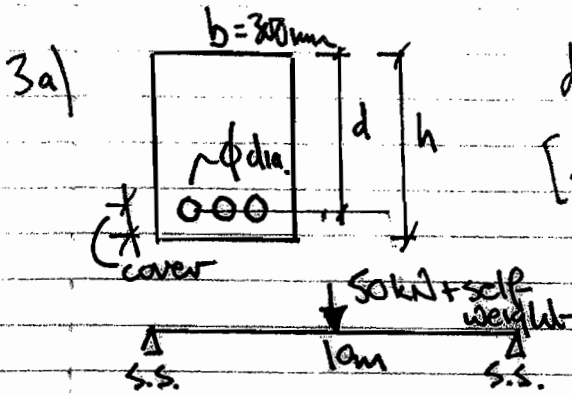 b=300mm
3a)
d
h
~ϕ dia.
cover
50kN + self-
weight
10m
S.S.
S.S.